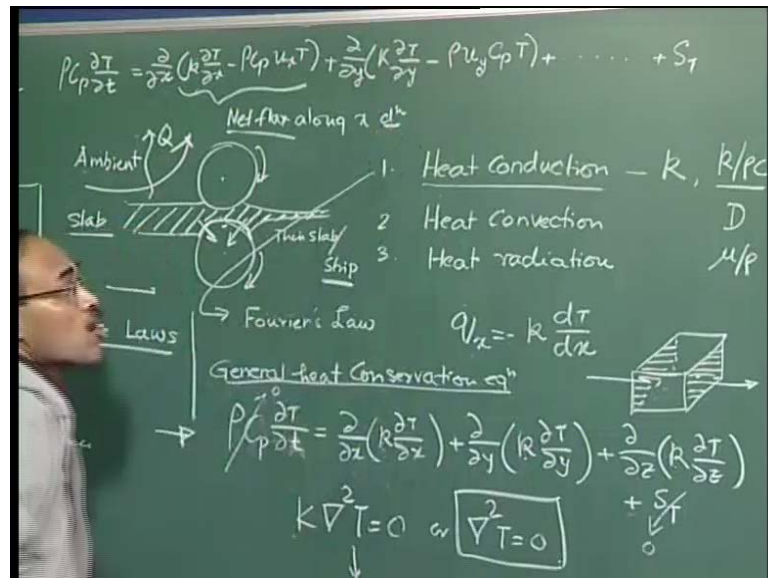 ρCp ∂T/∂t = ∂/∂x (k ∂T/∂x - ρCp uxT) + ∂/∂y (K ∂T/∂y - ρuy Cp T) + ..... + ST
Net flux along x dⁿ
Ambient Q
Slab
Thin Slab/
Ship
1. Heat Conduction - k, k/ρC
2 Heat Convection D
3. Heat radiation μ/ρ
Laws
Fourier's Law qx = -k dT/dx
General heat Conservation eqⁿ
→ ρCp ∂T/∂t = ∂/∂x (k ∂T/∂x) + ∂/∂y (k ∂T/∂y) + ∂/∂z (k ∂T/∂z)
0
+ ST
0
K∇²T=0 or ∇²T=0